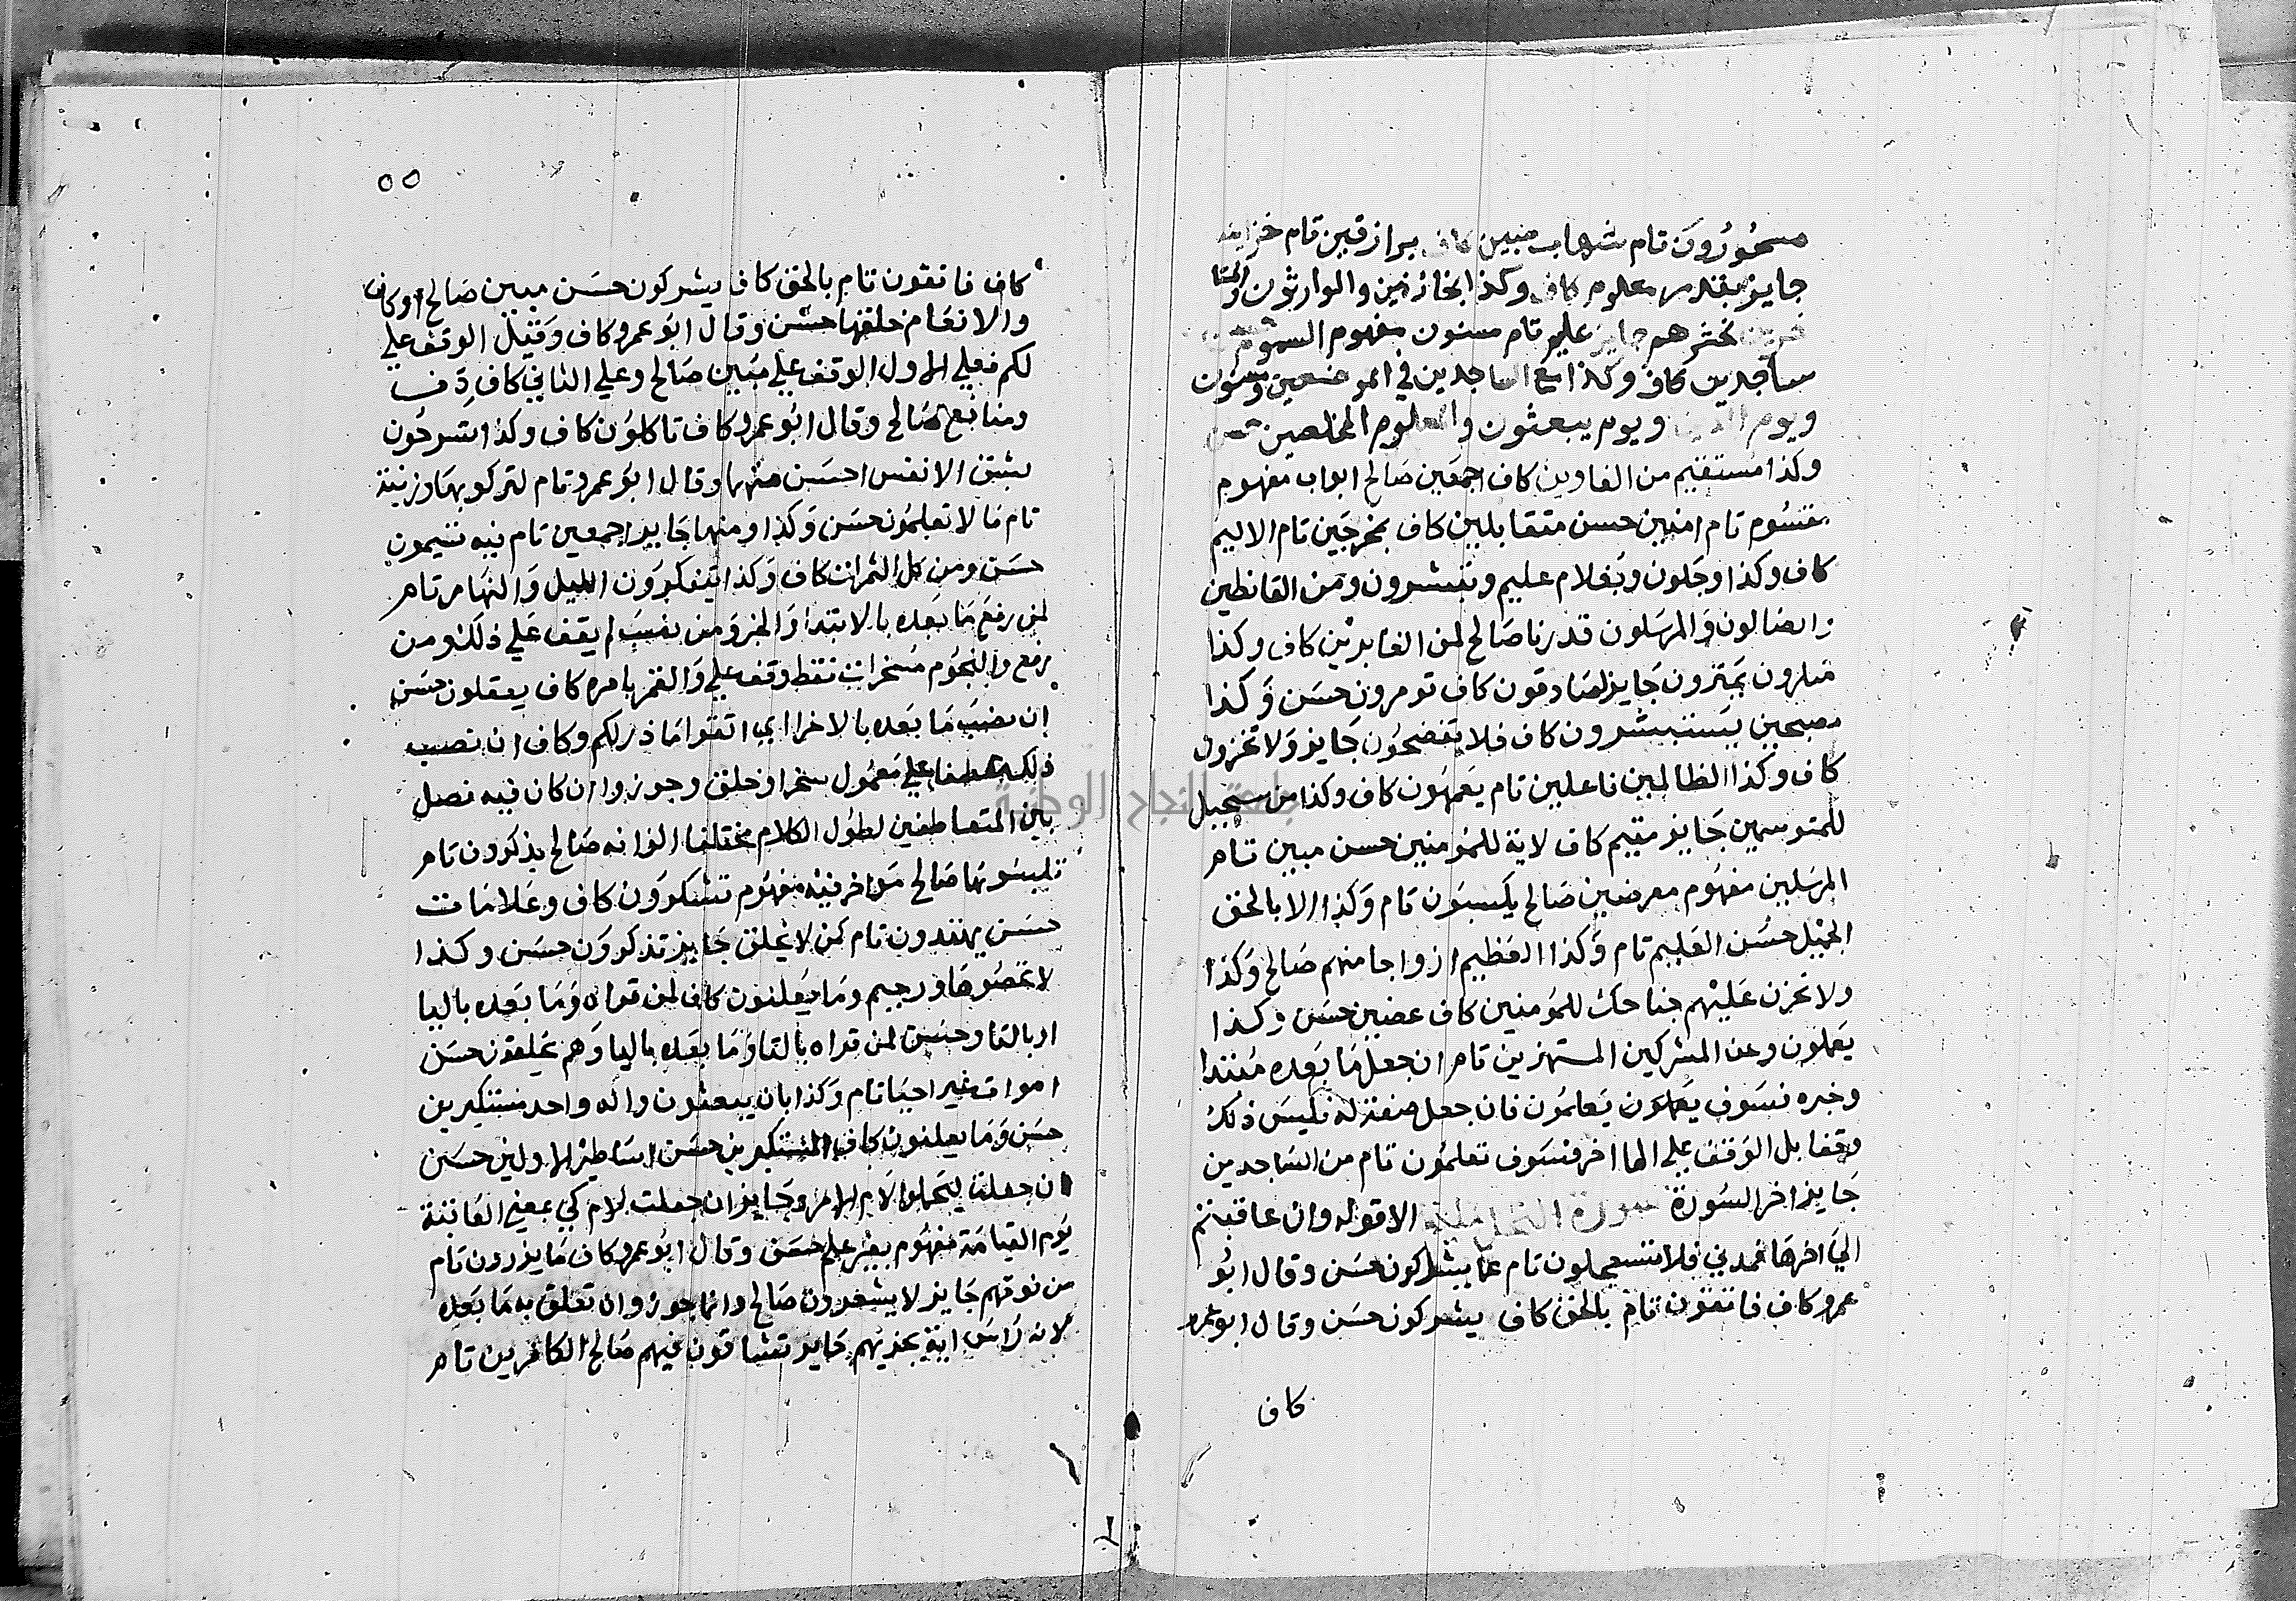 مسحورون تام شهاب مبين كاف برازقين تام خزاينه
جايز بقدر معلوم كاف وكذا بخازنين والوارثون
نحشرهم جايز عليم تام مسنون مفهوم السموم
ساجدين كاف وكذا مع الساجدين في الموضعين ومسنون
ويوم الدين ويوم يبعثون والمعلوم المخلصين
وكذا مستقيم من الغاوين كاف اجمعين صالح ابواب مفهوم
مقسوم تام امنين حسن متقابلين كاف بمخرجين تام الاليم
كاف وكذا وجلون وبغلام عليم وتبشرون ومن القانطين
والضالون والمرسلون قدرنا صالح لمن الغابرين كاف وكذا
منكرون يمترون جايز لصادقون كاف تومرون حسن وكذا
مصبحين يستبشرون كاف فلا تفضحون جايز ولا تخزون
كاف وكذا الظالمين فاعلين تام يعمهون كاف وكذا من سجيل
للمتوسمين جايز مقيم كاف لاية للمومنين حسن مبين تام
المرسلين مفهوم معرضين صالح يكسبون تام وكذا الا بالحق
الجميل حسن العليم تام وكذا العظيم ازواجا منهم صالح وكذا
ولا تحزن عليهم جناحك للمومنين كاف عضين حسن وكذا
يعملون وعن المشركين المستهزين تام ان جعل ما بعده مبتدا
وخبره فسوف يعملون يعلمون فان جعل صفة له فليس ذلك
وقفا بل الوقف على الها اخر فسوف تعلمون تام من الساجدين
جايز اخر السورة سورة النحل مكية الا قوله وان عاقبتم
الي اخرها فمدني فلا تستعجلون تام عما يشركون حسن وقال ابو
عمرو كاف فاتقون تام بالحق كاف يشركون حسن وقال ابو عمرو
كاف
٥٥
كاف فاتقون تام بالحق كاف يشركون حسن مبين صالح او كاف
والانعام خلقها حسن وقال ابو عمرو كاف وقيل الوقف علي
لكم فعلي الاول الوقف علي مبين صالح وعلي الثاني كاف دف
ومنافع صالح وقال ابو عمرو كاف تاكلون كاف وكذا تسرحون
بشق الانفس احسن منهما وقال ابو عمرو تام لتركبوها وزينة
تام ما لا تعلمون حسن وكذا ومنها جاير اجمعين تام فيه تسيمون
حسن ومن كل الثمرات كاف وكذا يتفكرون الليل والنهار تام
لمن رفع ما بعده بالابتدا والخبر ومن نصب لم يقف علي ذلك ومن
رفع والنجوم مسخرات فقط وقف علي والقمر بامره كاف يعقلون حسن
ان نصب ما بعده بالاغرا اي اتقوا ما ذرا لكم وكاف ان نصب
ذلك عطفا علي معمول سخر او خلق وجوزوا ان كان فيه فصل
بين المتعاطفين لطول الكلام مختلفا الوانه صالح يذكرون تام
تلبسونها صالح مواخر فيه مفهوم تشكرون كاف وعلامات
حسن يهتدون تام كمن لا يخلق جايز تذكرون حسن وكذا
لا تحصوها ورحيم وما يعلنون كاف لمن قراه وما بعده باليا
او بالتا وحسن لمن قراه بالتا وما بعده باليا وهم يخلقون حسن
اموات غير احيا تام وكذا ايان يبعثون واله واحد مستكبرين
حسن وما يعلنون كاف المستكبرين حسن اساطير الاولين حسن
ان جعلت ليحملوا لام الامر وجايز ان جعلت لام كي بمعني العاقبة
يوم القيامة مفهوم بغير علم حسن وقال ابو عمرو كاف ما يزرون تام
من فوقهم جايز لا يشعرون صالح وانما جوزوا ان تعلق به ما بعده
لانه راس اية يخزيهم جايز تشاقون فيهم صالح الكافرين تام